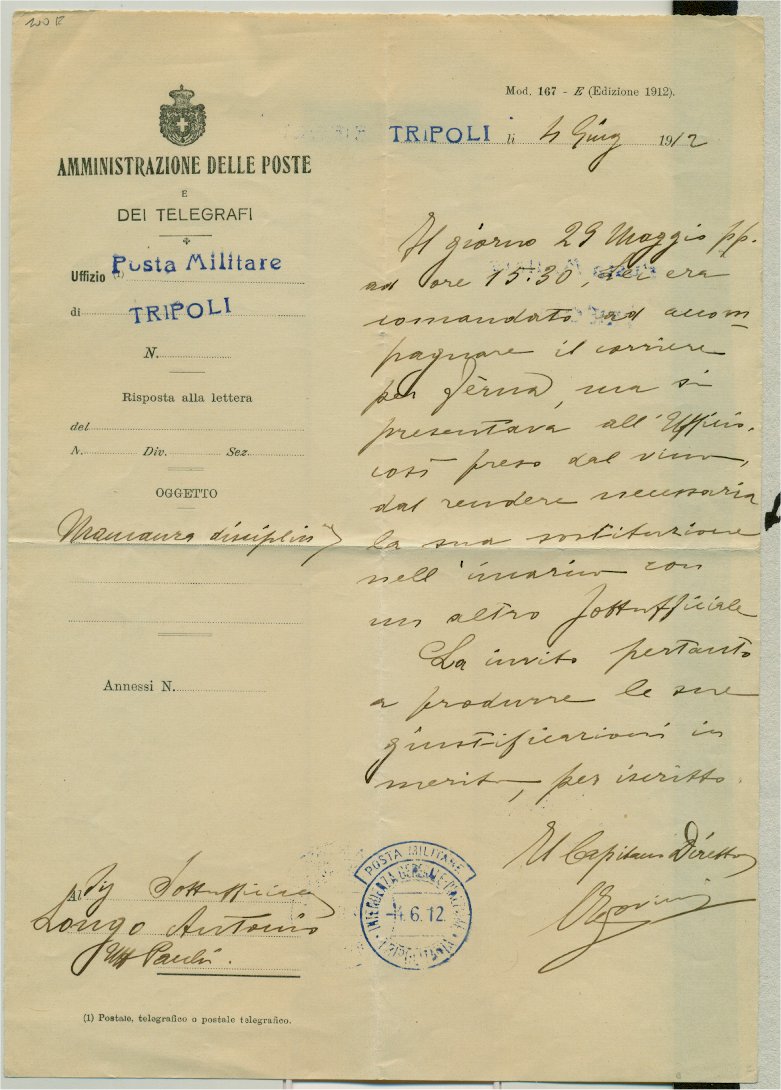 Mod. 167 - E (Edizione 1912).
TRIPOLI li 4 Giug 1912
AMMINISTRAZIONE DELLE POSTE
E
DEI TELEGRAFI
Uffizio (1) Posta Militare
di TRIPOLI
N.
Risposta alla lettera
del
N. Div. Sez.
OGGETTO
Mancanza disciplin
Annessi N.
Il giorno 29 Maggio pp.
ad ore 15.30, Lei era
comandato ad accom
pagnare il corriere
per Derna, ma si
presentava all'Ufficio,
così preso dal vino,
dal rendere necessaria
la sua sostituzione
nell'incarico con
un altro Sottufficiale
La invito pertanto
a produrre le sue
giustificazioni in
merito, per iscritto.
Il Capitano Direttore
Al Sig Sottufficiale
Longo Antonio
Uff Pacchi.
POSTA MILITARE
INTENDENZA
4.6.12
TRIPOLITANIA
(1) Postale, telegrafico o postale telegrafico.